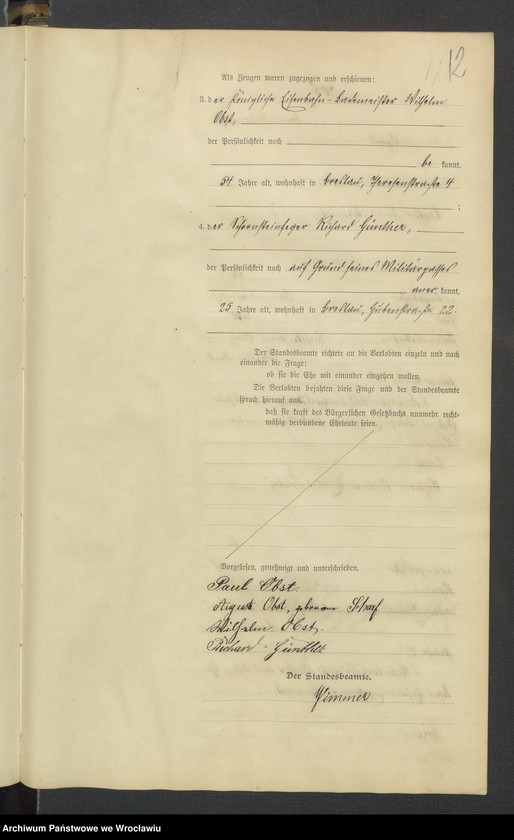 12
Als Zeugen waren zugezogen und erschienen:
3. der Königliche Eisenbahn-Lademeister Wilhelm
Obst,
der Persönlichkeit nach
be kannt,
54 Jahre alt, wohnhaft in Breslau, Theresenstraße 4
;
4. der Schornsteinfeger Richard Günther,
der Persönlichkeit nach auf Grund seines Militärpasses
aner kannt,
25 Jahre alt, wohnhaft in Breslau, Hubenstraße 22.
Der Standesbeamte richtete an die Verlobten einzeln und nach
einander die Frage:
ob sie die Ehe mit einander eingehen wollen.
Die Verlobten bejahten diese Frage und der Standesbeamte
sprach hierauf aus,
daß sie kraft des Bürgerlichen Gesetzbuchs nunmehr recht-
mäßig verbundene Eheleute seien.
Vorgelesen, genehmigt und unterschrieben.
Paul Obst.
Obst, geborene
Wilhelm Obst.
Richard Günther
Der Standesbeamte.
Archiwum Państwowe we Wrocławiu